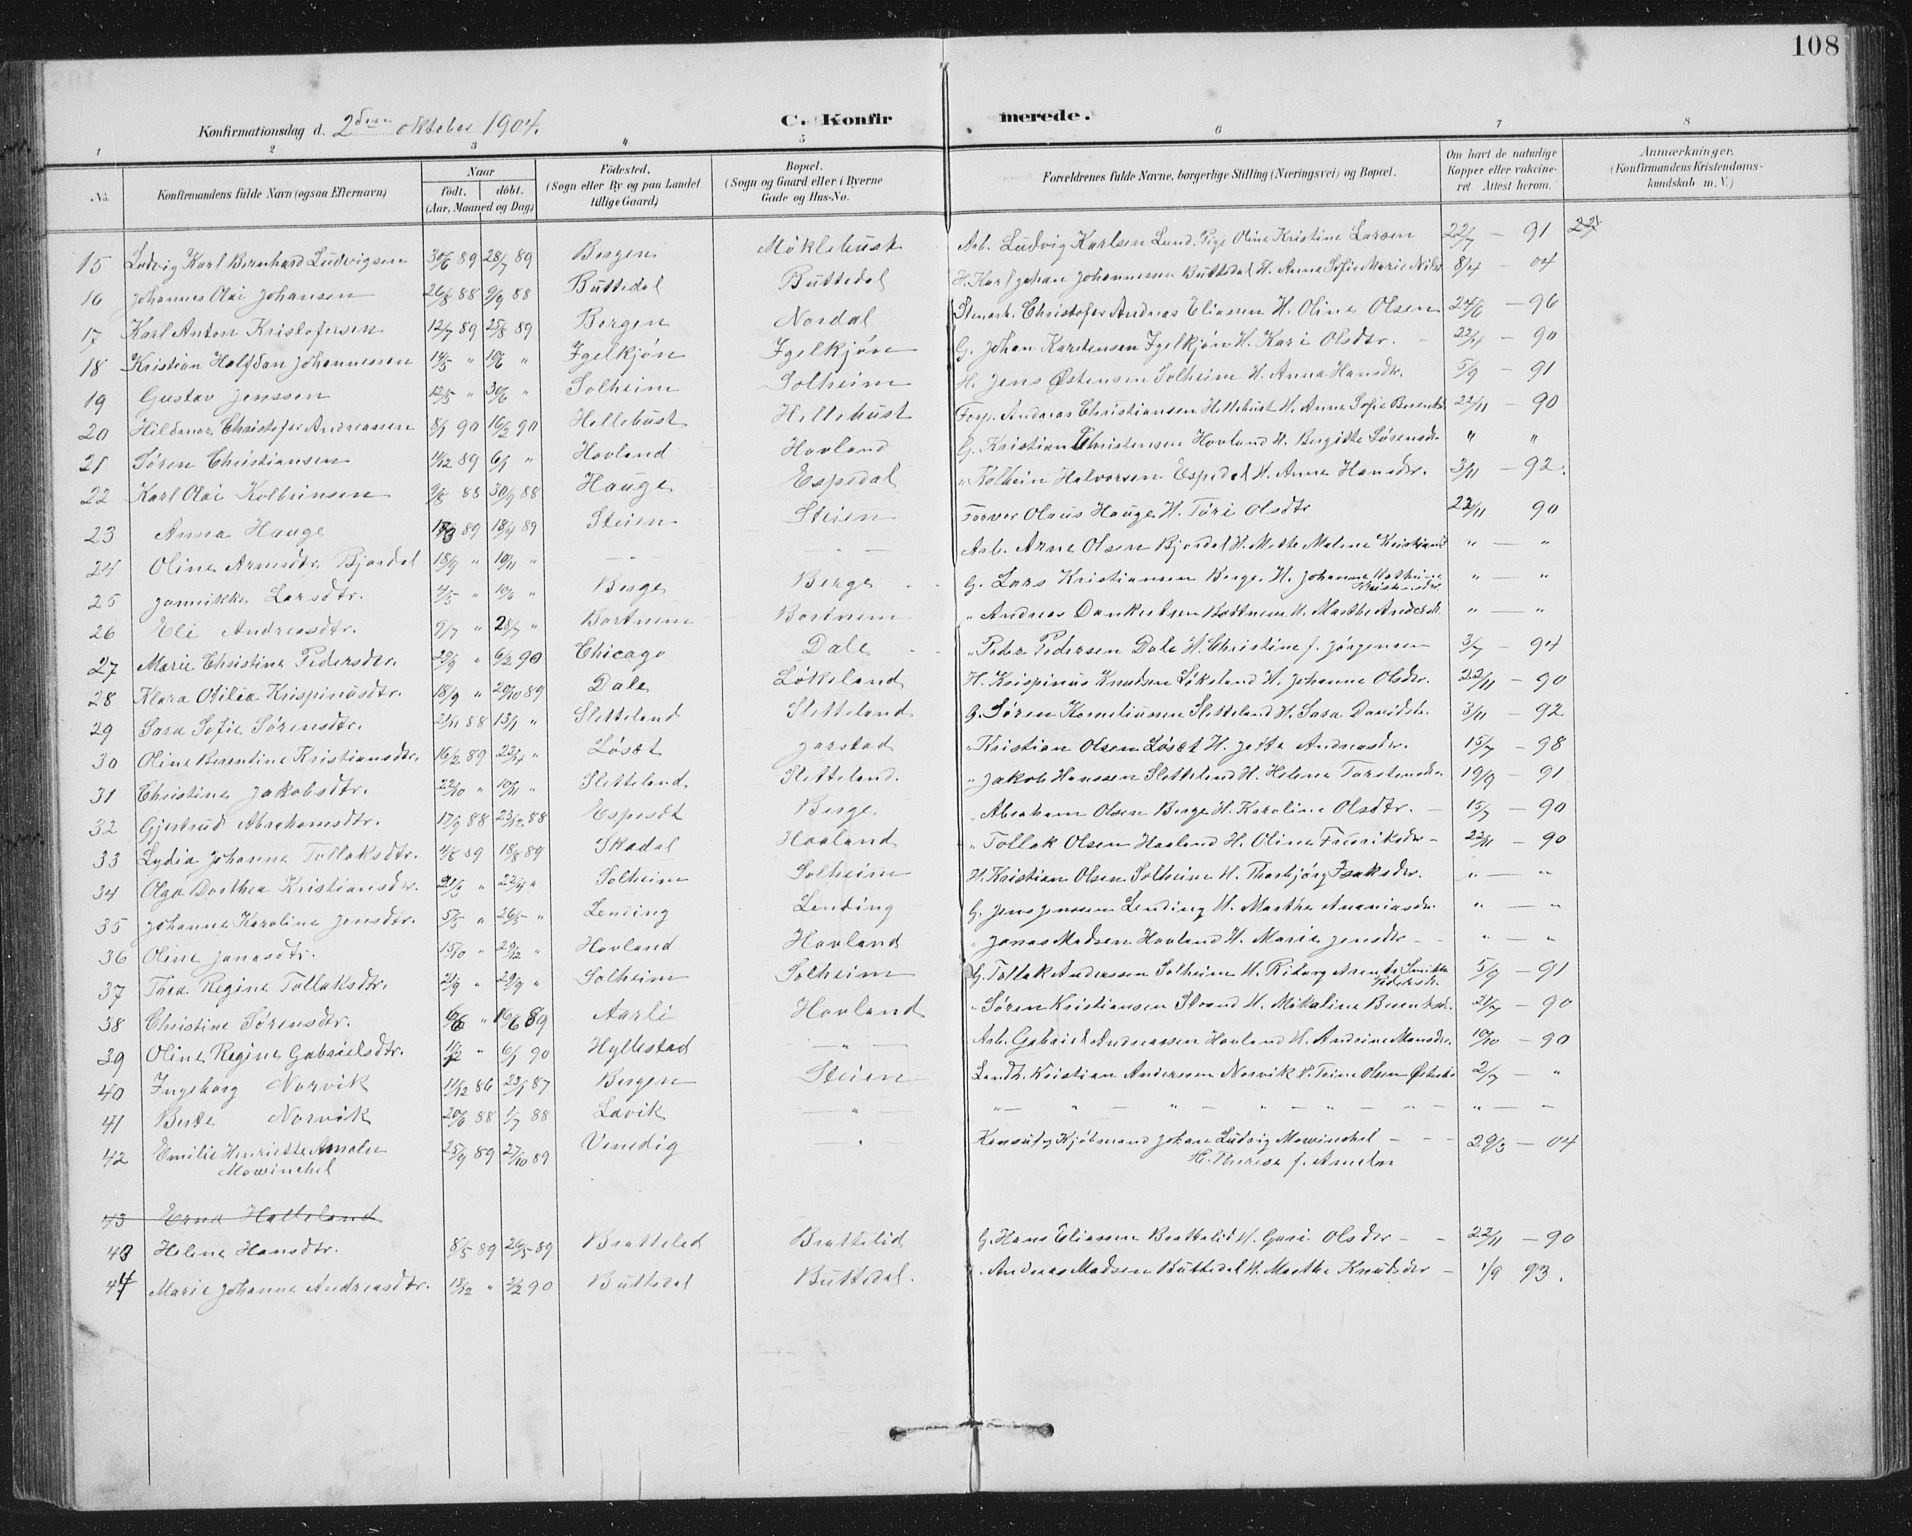 108
Konfirmationsdag d. 2den Oktober 1904. C. Konfirmerede.
1 2 3 4 5 6 7 8
No. Konfirmandens fulde Navn (ogsaa Efternavn) Naar født. døbt. (Aar, Maaned og Dag) Födested. (Sogn eller By og paa Landet tillige Gaard) Bopæl. (Sogn og Gaard eller i Byerne Gade og Hus-No. Forældrenes fulde Navne, borgerlige Stilling (Næringsvei) og Bopæl. Om havt de naturlige Kopper eller vaccineret. Attest herom. Anmærkninger. (Konfirmandens Kristendomskundskab m. V.)
15 Ludvig Karl Bernhard Ludvigsen 30/6 89 28/7 89 Bergen Møklebust Arb. Ludvig Karlsen Lund. Pige Oline Kristine Larsen 22/7 — 91
16 Johannes Olai Johansen 26/8 88 9/9 88 Buttedal Buttedal H. Karl Johan Johannesen Buttedal H. Anna Sofie Marie 8/4 — 04
17 Karl Anton Kristofersen 12/7 89 25/8 89 Bergen Nordal Christofer Andreas Eliassen H. Oline Olsen 24/6 — 96
18 Kristian Halfdan Johannessen " " Igelkjøn Igelkjøn G. Johan Karstensen Igelkjøn H. Kari Olsdtr. 22/4 — 90
19 Gustav Jenssen 12/5 " 30/6 " Solheim Solheim H. Jens Østensen Solheim H. Anna Hansdtr. 5/9 — 91
20 Hildmar Christofer Andreassen 8/1 90 16/2 90 Hellebust Hellebust Andreas Christiansen Hellebust H. Anne Sofie 22/11 — 90
21 Søren Christiansen 11/12 89 6/1 " Hovland Hovland G. Kristian Christensen Hovland H. Bergitte Sørensdtr " "
22 Karl Olai Kolbeinsen 9/8 88 30/9 88 Hauge Espedal " Kolbein Halvorsen Espedal H. Anne Hansdtr. 3/11 — 92.
23 Anna Hauge 89 18/4 89 Steien Steien Forver Olaus Hauge H. Töri Olsdtr 22/11 90
24 Oline Arnesdtr. Bjordal 18/9 " 10/11 " — " — " — Arb. Arne Olsen Bjordal H. Mette Malene " — "
25 Jannikke Larsdtr. 4/5 " 10/6 " Berge Berge G. Lars Kristiansen Berge H. Johanne " — "
26 Eli Andreasdtr. 9/7 " 28/7 " Bortnem Bortnem " Andreas Dankertsen Bortnem H. Marthe " — "
27 Marie Christine Pedersdtr. 29/9 " 6/2 90 Chicago Dale " Peder Pedersen Dale H. Christine f. Jørgensen 3/7 — 94
28 Klara Otilia Krispinusdtr. 18/9 " 20/10 89 Dale Løkeland H. Krispinus Knudsen Løkeland H. Johanne Olsdtr. 22/11 — 90
29 Sara Sofie Sørensdtr. 88 13/1 " Sletteland Sletteland G. Søren Korneliussen Sletteland H. Sara Davidsdtr. 3/11 — 92
30 Oline Berentine Kristiansdtr. 16/2 89 22/4 " Løsæt Jarstad " Kristian Olsen Løsæt H. Jette Andreasdtr. 15/7 — 98
31 Christine Jakobsdtr. 22/10 " 10/11 " Sletteland Sletteland. " Jakob Hanssen Sletteland H. Helene Torstensdtr 19/9 — 91
32 Gjertrud Abrahamsdtr. 17/9 88 23/12 88 Berge. " Abraham Olsen Berge H. Karoline Olsdtr. — 15/7 — 90
33 Lydia Johanne Tollaksdtr. 4/8 89 18/8 89 Skadal Hovland " Tollak Olsen Hovland H. Oline — 22/11 — 90
34 Olga Dorthea Kristiansdtr. 21/3 " 22/4 " Solheim Solheim H. Kristian Olsen Solheim H. Thorbjørg Isaksdtr. " — "
35 Johanne Karoline Jensdtr. 5/5 " 26/5 " Lending Lending G. Jens Jenssen Lending H. Marthe Ananiasdtr " — "
36 Oline Jonasdtr. 15/10 " 29/12 " Hovland Hovland " Jonas Madsen Hovland H. Marie Jensdtr — " — "
37 Thea Regine Tollaksdtr. 2/9 " 29/9 " Solheim Solheim G. Tollak Anderssen Solheim H. 5/9 — 91
38 Christine Sørensdtr. 6/6 " 89 Aarli Hovland " Søren Kristiansen Strand H. Mikaline Berentsdtr. 21/7 — 90
39 Oline Regine Gabrielsdtr. " 6/1 90 Hyllestad — " — Arb. Gabriel Andreassen Hovland H. Andrine Monsdtr. 10/10 — 90
40 Ingeborg Norvik 11/12 86 23/1 87 Bergen Steien Landh. Kristian Anderssen Norvik H. Trine Olsen 2/7 — "
41 Berte Norvik 20/6 88 1/7 88 Lavik " " — " — " — " — " — " — " — " — "
42 Emilie Henriette Amelia 25/9 89 27/10 89 Venedig — " Konsul og Kjøbmand Johan Ludvig Mowinckel — — 29/3 — 04
Mowinckel H. Therese f. Amelin
43 Erna Halleland
43 Helene Hansdtr. 8/5 89 26/5 89 Brattelid Brattelid G. Hans Eliassen Brattelid H. Guri Olsdtr — — 22/11 — 90
44 Marie Johanne Andreasdtr. 13/12 " 2/2 90 Buttedal Buttedal. Andreas Madsen Buttedal H. Marthe Knudsdtr — 1/9 93.